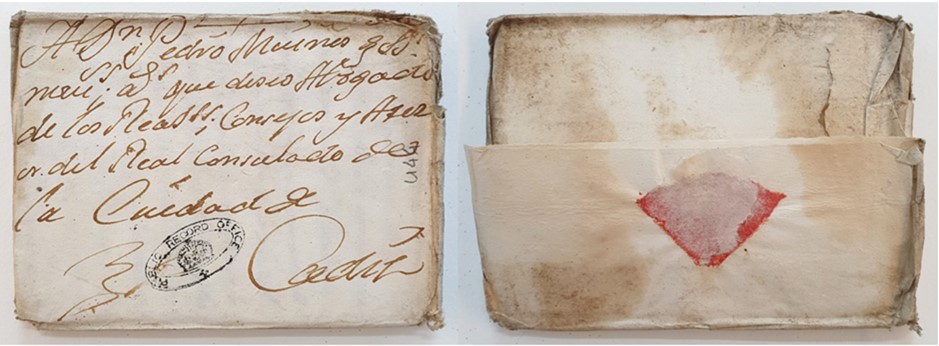 A Dn. Pedro Muines q Ds.
ms. as. que deseo Abogado
de los Reass. Consejos y Aser
or. del Real Consulado de
la Ciudad de
Cadiz
PUBLIC RECORD OFFICE